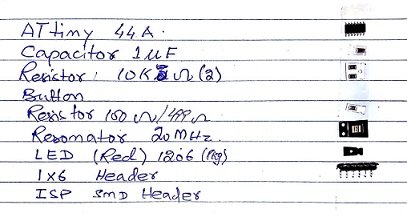 ATtiny 44A.
Capacitor 1uF
Resistor: 10K Ω (2)
Button
Resistor 100 Ω/499Ω
Resonator 20MHz.
LED (Red) 1206 (pkg)
1x6 Header
ISP SMD Header